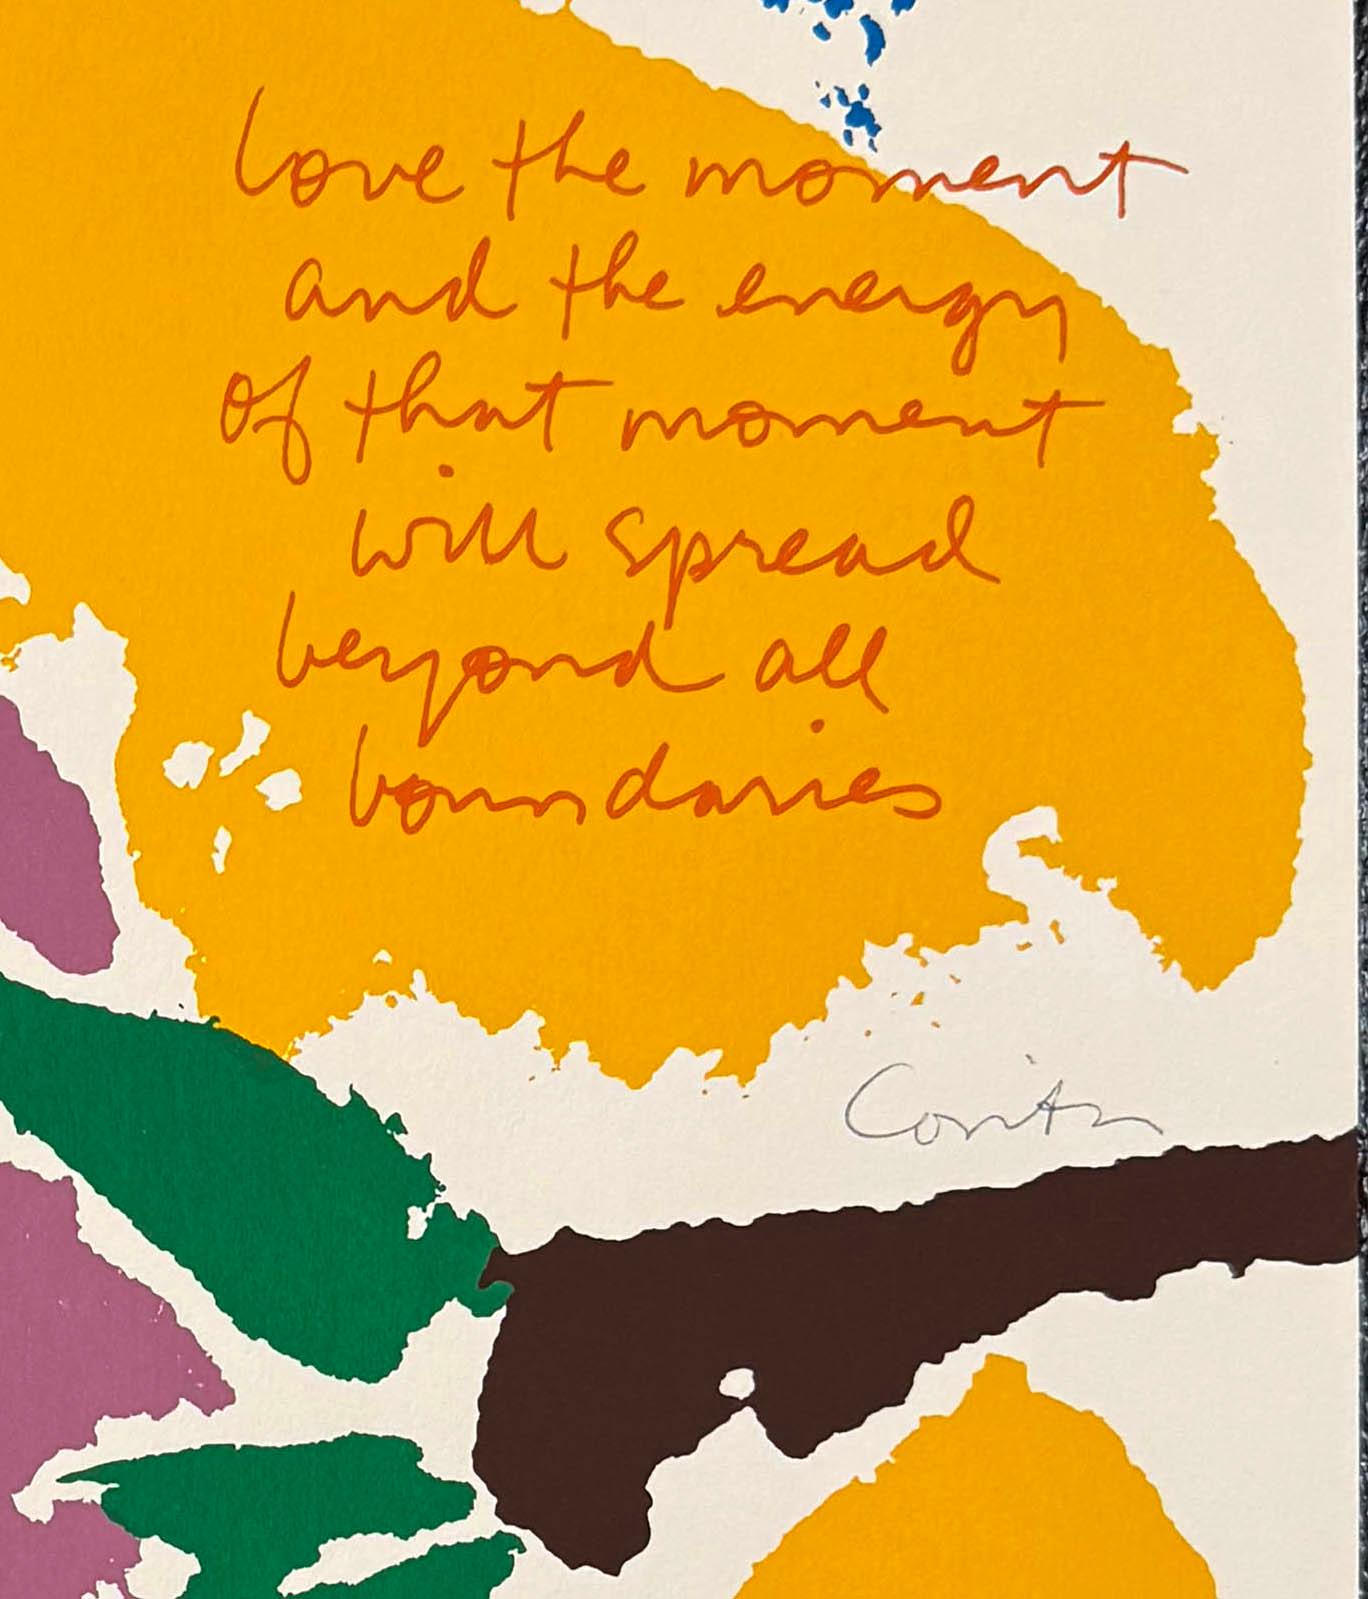 love the moment
and the energy
of that moment
will spread
beyond all
boundaries
Corita